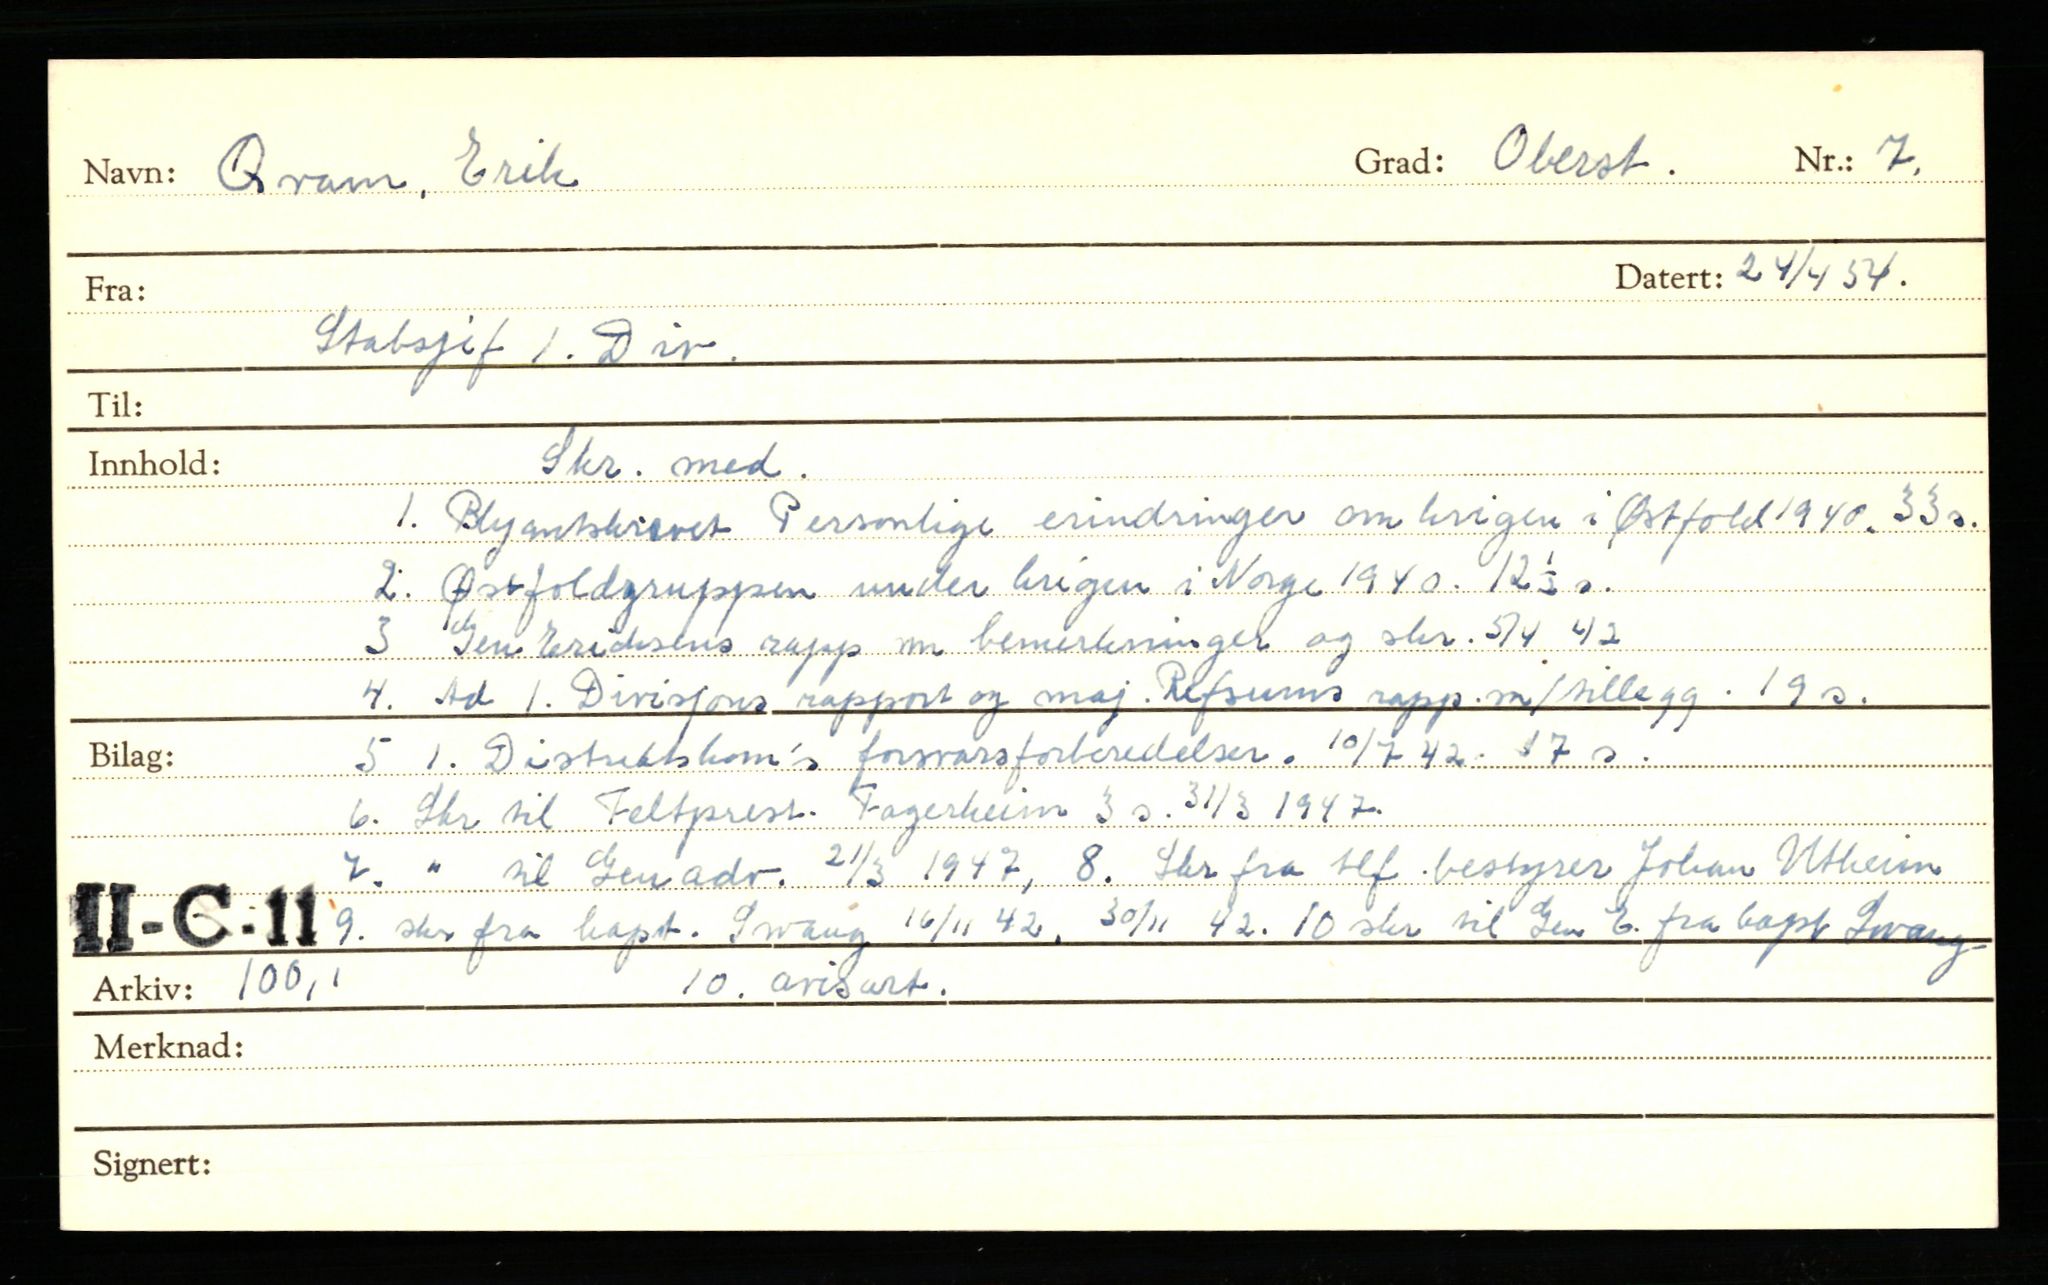 Navn: Qvam, Erik Grad: Oberst. Nr.: 7.
Fra: Datert: 24/4 54.
Stabsjef 1. Div.
Til:
Innhold: Skr. med.
1. Blyantskrevet Personlige erindringer om krigen i Østfold 1940. 33 s.
2. Østfoldgruppen under krigen i Norge 1940. 12 1/3 s.
3 Gen Erichsens rapp m bemerkninger og skr. 5/4 42
4. Ad 1. Divisjons rapport og maj. Refsums rapp. m/tillegg. 19 s.
Bilag: 5 1. Distriktskom's forsvarsforberedelser. 10/7 42. 17 s.
6. Skr til Feltprest. Fagerheim 3 s. 31/3 1947.
7. " til Gen adv. 21/3 1947, 8. Skr fra tlf. bestyrer Johan Utheim
II-C-11 9. skr fra kapt. Swang 16/11 42, 30/11 42. 10 skr til Gen E. fra kapt Swang
Arkiv: 100,1 10. avisart.
Merknad:
Signert: